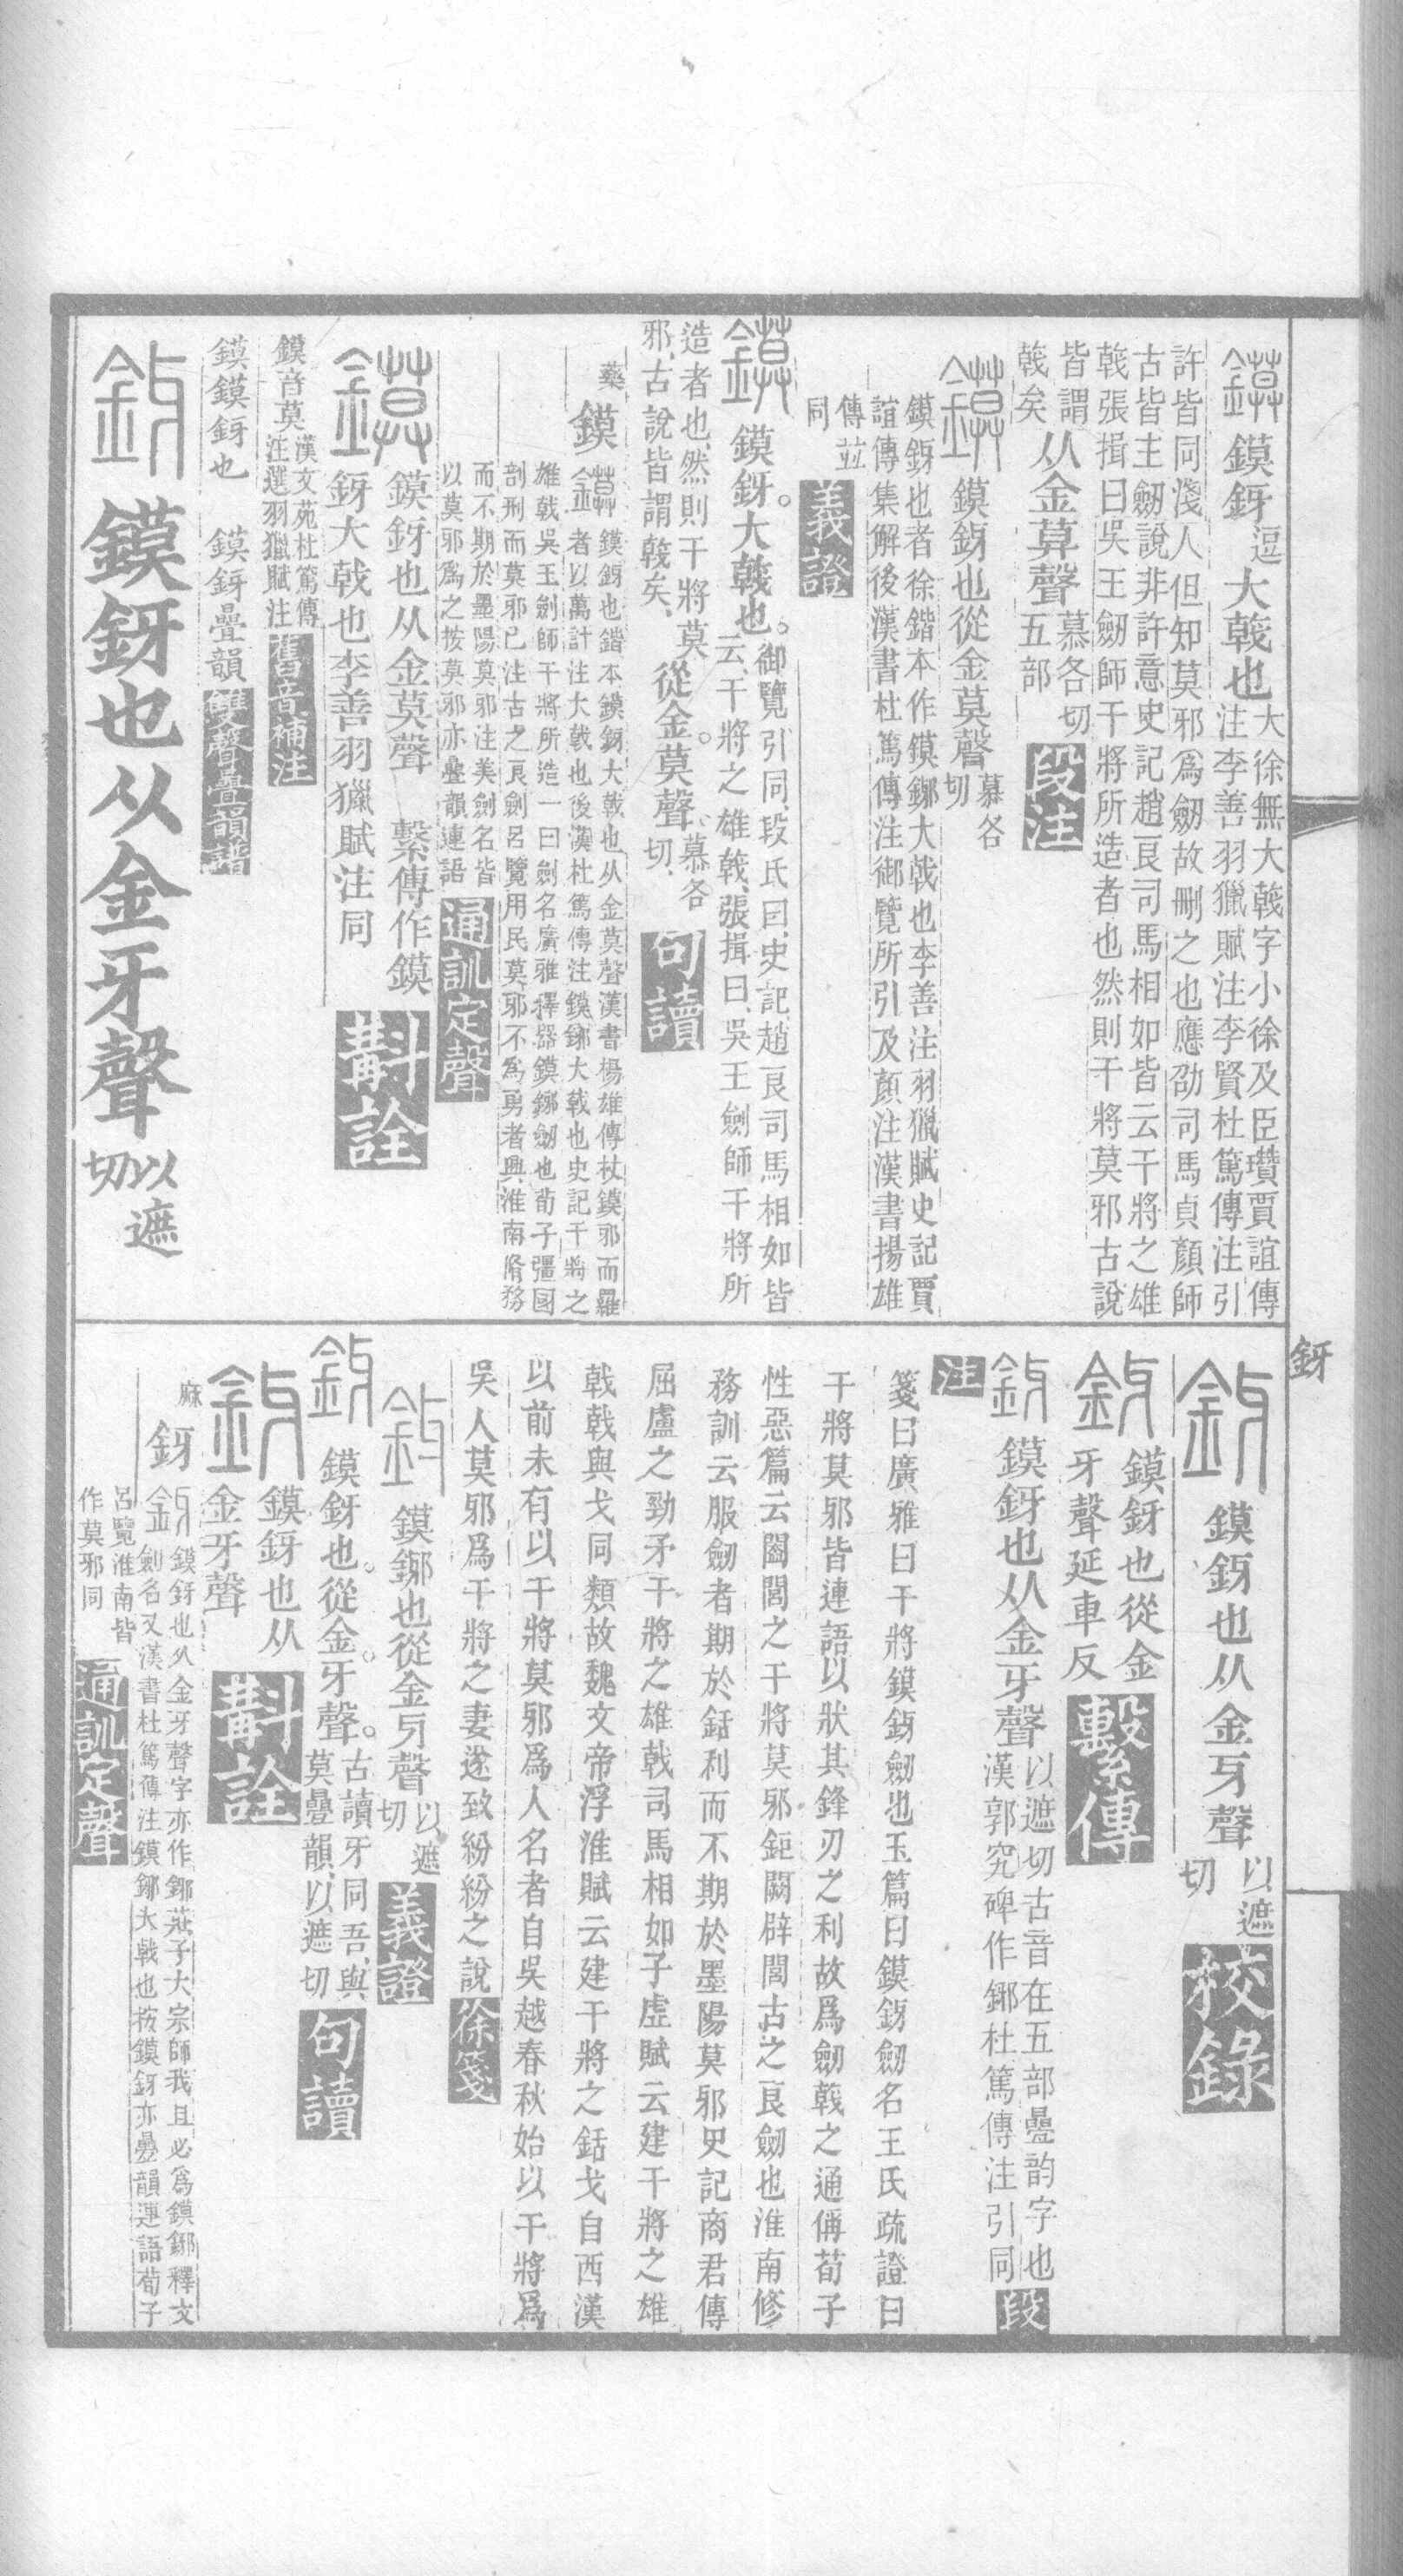 鏌 鏌釾逗大𢧢也大徐無大𢧢字小徐及臣瓚賈誼傳
注李善羽獵賦注李賢杜篤傳注引
許皆同淺人但知莫邪爲劒故刪之也應劭司馬貞顏師
古皆主劒說非許意史記趙良司馬相如皆云干將之雄
𢧢張揖曰吳王劒師干將所造者也然則干將莫邪古說
皆謂
𢧢矣从金莫聲慕各切
五部段注
鏌 鏌釾也從金莫聲慕各
切
鏌釾也者徐鍇本作鏌鋣大戟也李善注羽獵賦史記賈
誼傳集解後漢書杜篤傳注御覽所引及顏注漢書揚雄
傳並
同義證
鏌 鏌釾。大𢧢也。御覽引同、段氏曰、史記、趙良司馬相如皆
云、干將之雄𢧢、張揖曰、吳王劍師干將所
造者也、然則干將莫
邪、古說皆謂𢧢矣、從金。莫聲、慕各
切、句讀
藥
鏌 鏌 鏌釾也鍇本鏌釾大𢧢也从金莫聲漢書楊雄傳杖鏌邪而羅
者以萬計注大𢧢也後漢杜篤傳注鏌鋣大𢧢也史記干將之
雄戟吳王劍師干將所造一曰劍名廣雅釋器鏌鋣劒也荀子彊國
剖刑而莫邪已注古之良劍呂覽用民莫邪不爲勇者興淮南脩務
而不期於墨陽莫邪注美劍名皆
以莫邪爲之按莫邪亦疊韻連語通訓定聲
鏌 鏌釾也从金莫聲 繫傳作鏌
釾大戟也李善羽獵賦注同斠詮
鏌音莫漢文苑杜篤傳
注選羽獵賦注舊音補注
鏌鏌釾也 鏌釾疊韻雙聲疊韻譜
釾 鏌釾也从金牙聲以遮
切
釾
釾 鏌釾也从金牙聲以遮
切校錄
釾 鏌釾也從金
牙聲延車反繫傳
釾 鏌釾也从金牙聲以遮切古音在五部疊韵字也
漢郭究碑作鋣杜篤傳注引同段
注
箋曰廣雅曰干將鏌釾劒也玉篇曰鏌釾劒名王氏疏證曰
干將莫邪皆連語以狀其鋒刃之利故爲劒𢧢之通偁荀子
性惡篇云闔閭之干將莫邪鉅闕辟閭古之良劒也淮南修
務訓云服劒者期於銛利而不期於墨陽莫邪史記商君傳
屈盧之勁矛干將之雄戟司馬相如子虛賦云建干將之雄
戟戟與戈同類故魏文帝浮淮賦云建干將之銛戈自西漢
以前未有以干將莫邪爲人名者自吳越春秋始以干將爲
吳人莫邪爲干將之妻遂致紛紛之說徐箋
釾 鏌鋣也從金牙聲以遮
切義證
釾 鏌釾也。從金。牙聲。古讀牙同吾、與
莫疊韻、以遮切句讀
釾 鏌釾也从
金牙聲斠詮
麻
釾 釾 鏌釾也从金牙聲字亦作鋣莊子大宗師我且必爲鏌鋣釋文
劍名又漢書杜篤傳注鏌鋣大戟也按鏌釾亦疊韻連語荀子
呂覽淮南皆
作莫邪同通訓定聲